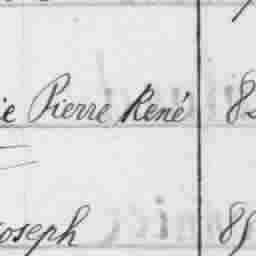 ie Pierre René 82
Joseph 85